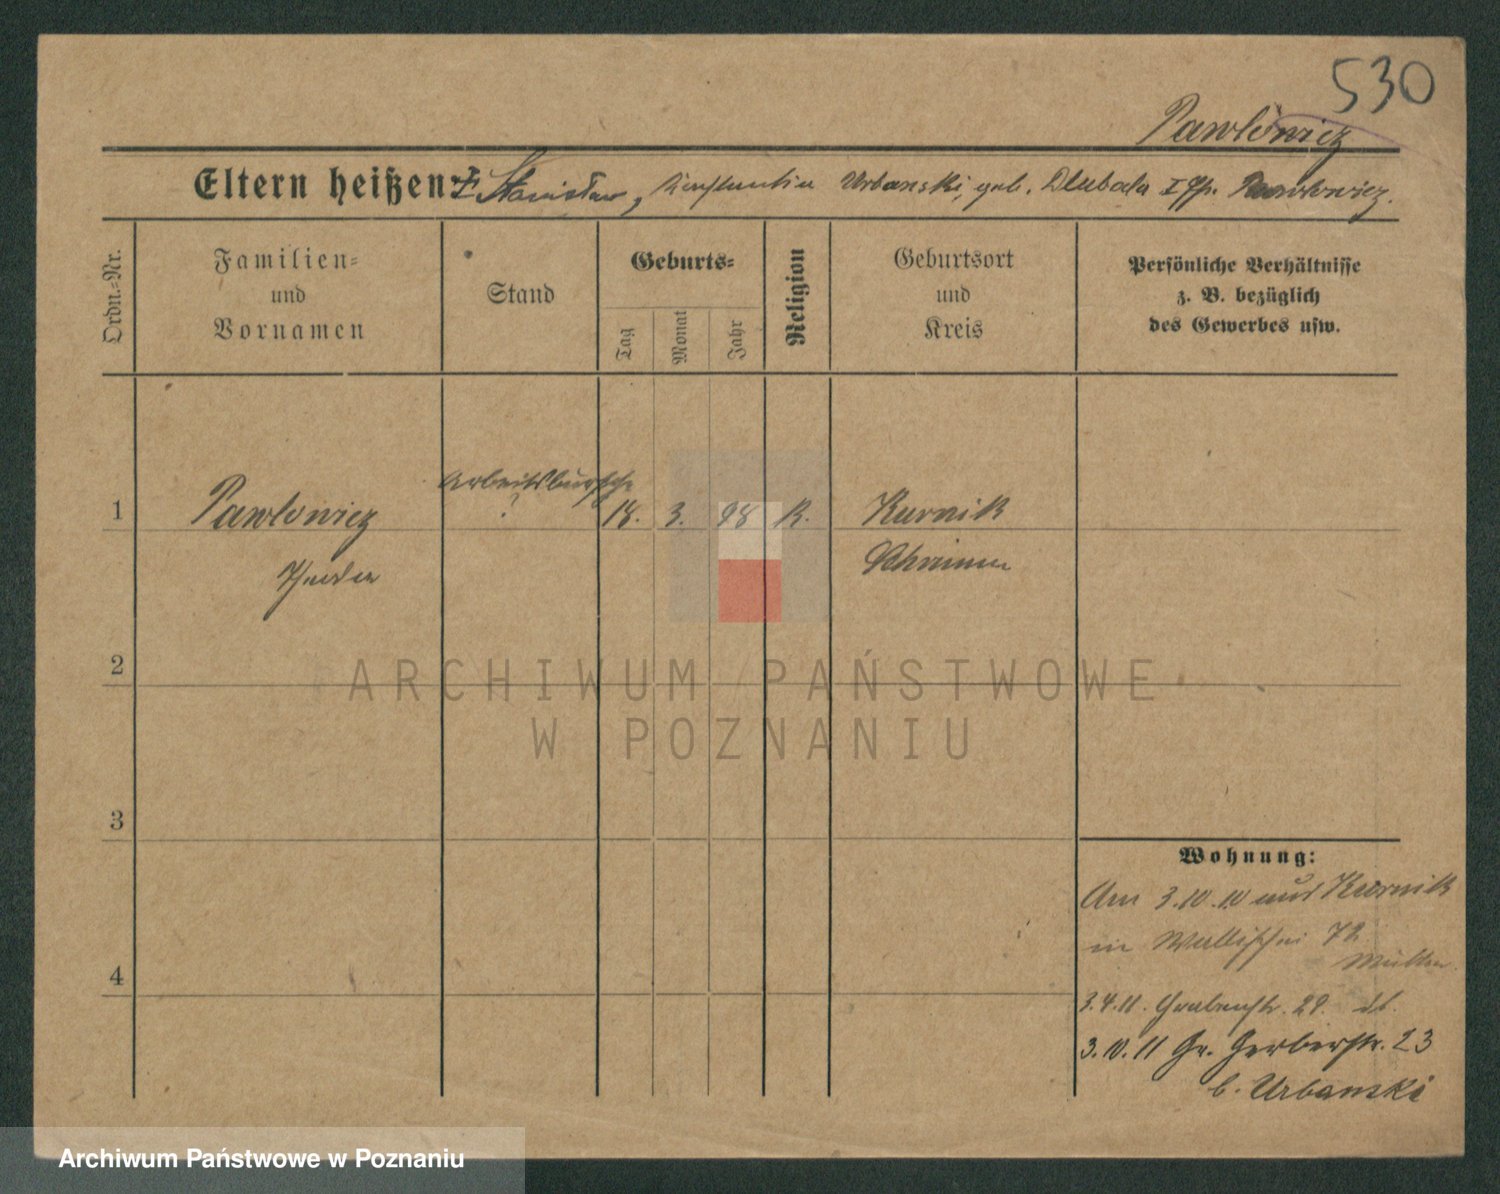 530
Pawlowicz
Eltern heißen: † Stanislaw, Urbanski, geb. Dlubala I Eh. Pawlowicz.
Ordn.-Nr.
Familien-
und
Vornamen
Stand
Geburts-
Tag
Monat
Jahr
Religion
Geburtsort
und
Kreis
Persönliche Verhältnisse
z. B. bezüglich
des Gewerbes usw.
Arbeitsbursche
?
1 Pawlowicz 18. 3. 98 K. Kurnik
Schrimm
2
3
4
Wohnung:
Am 3.10.10 aus Kurnik
in Wallischei 72
3.4.11. Grabenstr. 29. db.
3.10.11 Gr. Gerberstr. 23
b. Urbanski
ARCHIWUM PAŃSTWOWE
W POZNANIU
Archiwum Państwowe w Poznaniu